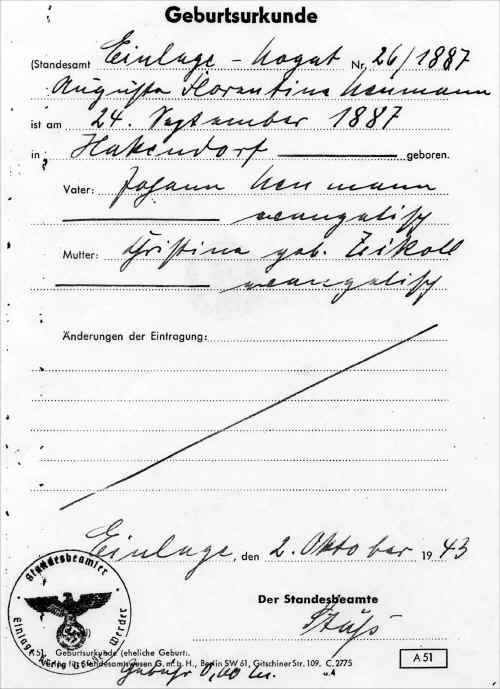 Geburtsurkunde
(Standesamt Einlage - Nogat Nr. 26/1887
Augusta Florentine Neumann
ist am 24. September 1887
in Hakendorf geboren.
Vater: Johann Neumann
evangelisch
Mutter: Christina geb.
evangelisch
Änderungen der Eintragung:
Einlage, den 2. Oktober 1943
Standesbeamter
Einlage Werder
Der Standesbeamte
A 51. Geburtsurkunde (eheliche Geburt).
Verlag für Standesamtswesen G. m. b. H., Berlin SW 61, Gitschiner Str. 109. C. 2775
u. 4
A 51
Gebühr 0,00